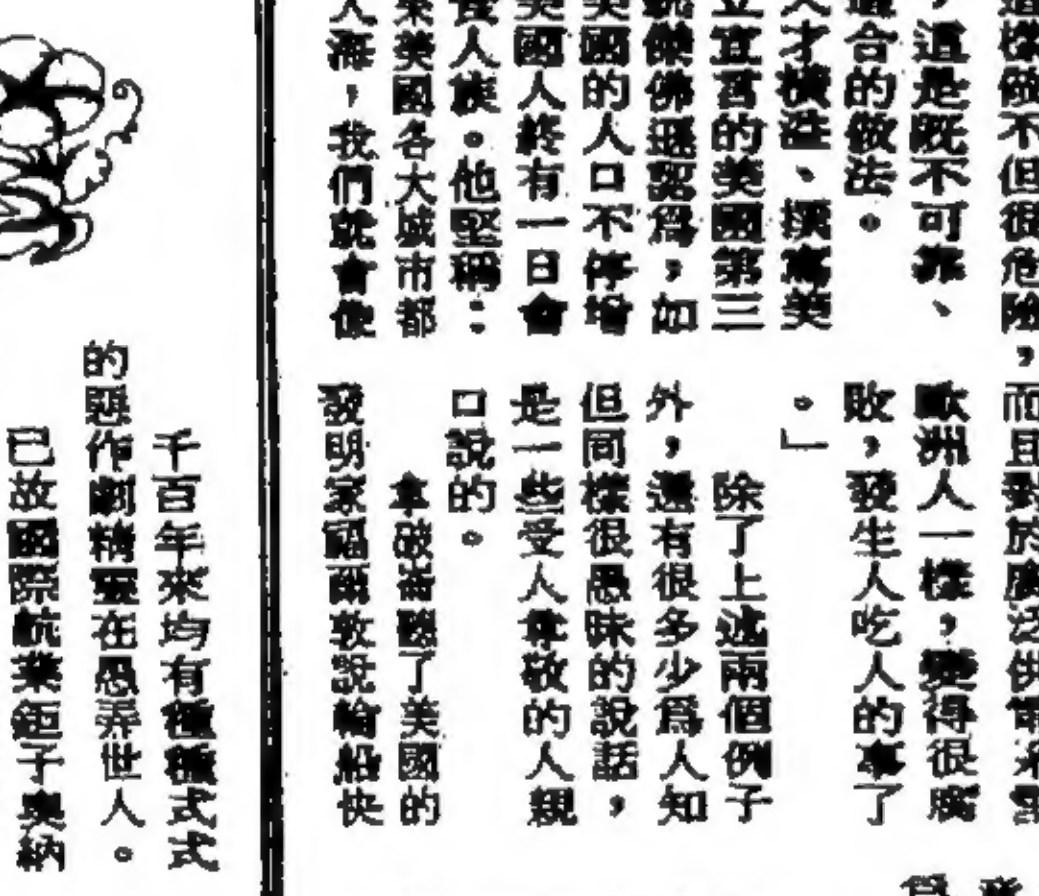 這樣做不但很危險，
，這是既不可靠、
適合的做法。
人才橫溢、撰寫美
立宣言的美國第三
統傑佛遜認爲，如
美國的人口不停增
美國人終有一日會
食人族。他堅稱：
來美國各大城市都
人海，我們就會像
而且對於廣泛供電來
歐洲人一樣，變得很腐
敗，發生人吃人的事了
。」
除了上述兩個例子
外，還有很多少爲人知
但同樣很愚昧的說話，
是一些受人尊敬的人親
口說的。
拿破崙聽了美國的
發明家福爾敦說輪船快
千百年來均有種種式式
的惡作劇精靈在愚弄世人。
已故國際航業鉅子奧納